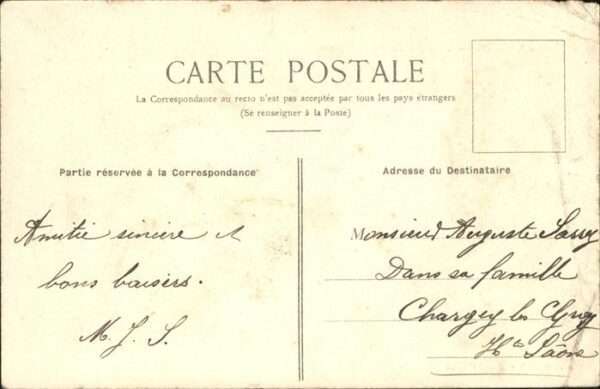 CARTE POSTALE
La Correspondance au recto n'est pas acceptée par tous les pays étrangers
(Se renseigner à la Poste)
Partie réservée à la Correspondance
Adresse du Destinataire
Amitié sincère
bons baisers.
M. J. S.
Monsieur Auguste
Dans sa famille
Chargey les Gray
Hte Saône